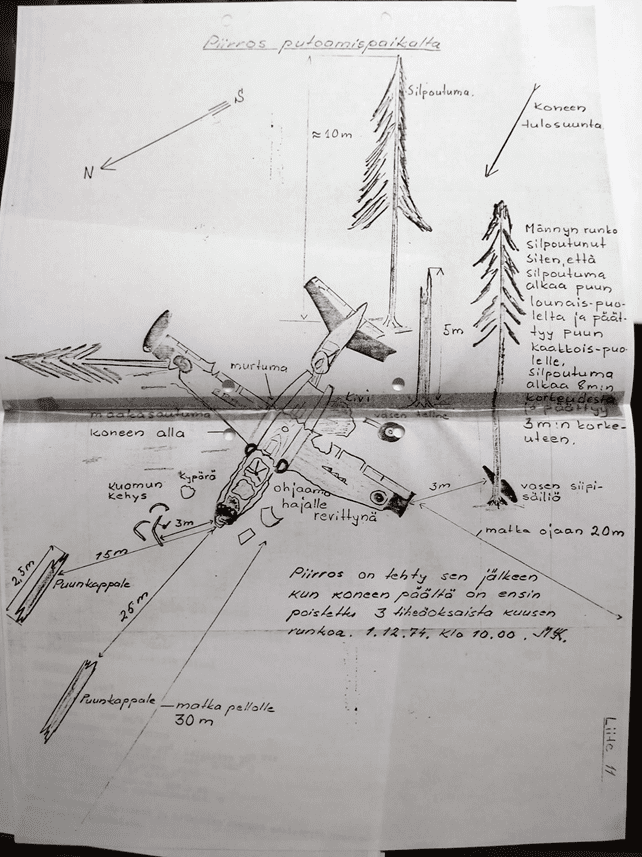 Piirros putoamispaikalta
S
N
≈10m
Silpoutuma.
Koneen
tulosuunta
5m
Männyn runko
silpoutunut
siten, että
silpoutuma
alkaa puun
lounais-puo-
lelta ja päät-
tyy puun
kaakkois-puo-
lelle,
silpoutuma
alkaa 8m:n
korkeudesta
ja päättyy
3m:n korke-
uteen.
murtuma
kivi
vasen teline
maakasautuma
koneen alla
kypärä
kuomun
kehys
ohjaamo
hajalle
revittynä
3m
3m
vasen siipi-
säiliö
matka ojaan 20m
15m
2,5m
Puunkappale
26m
Piirros on tehty sen jälkeen
kun koneen päältä on ensin
poistettu 3 tiheäoksaista kuusen
runkoa. 1.12.74. Klo 10.00.
Puunkappale
matka pellolle
30m
Liite 11